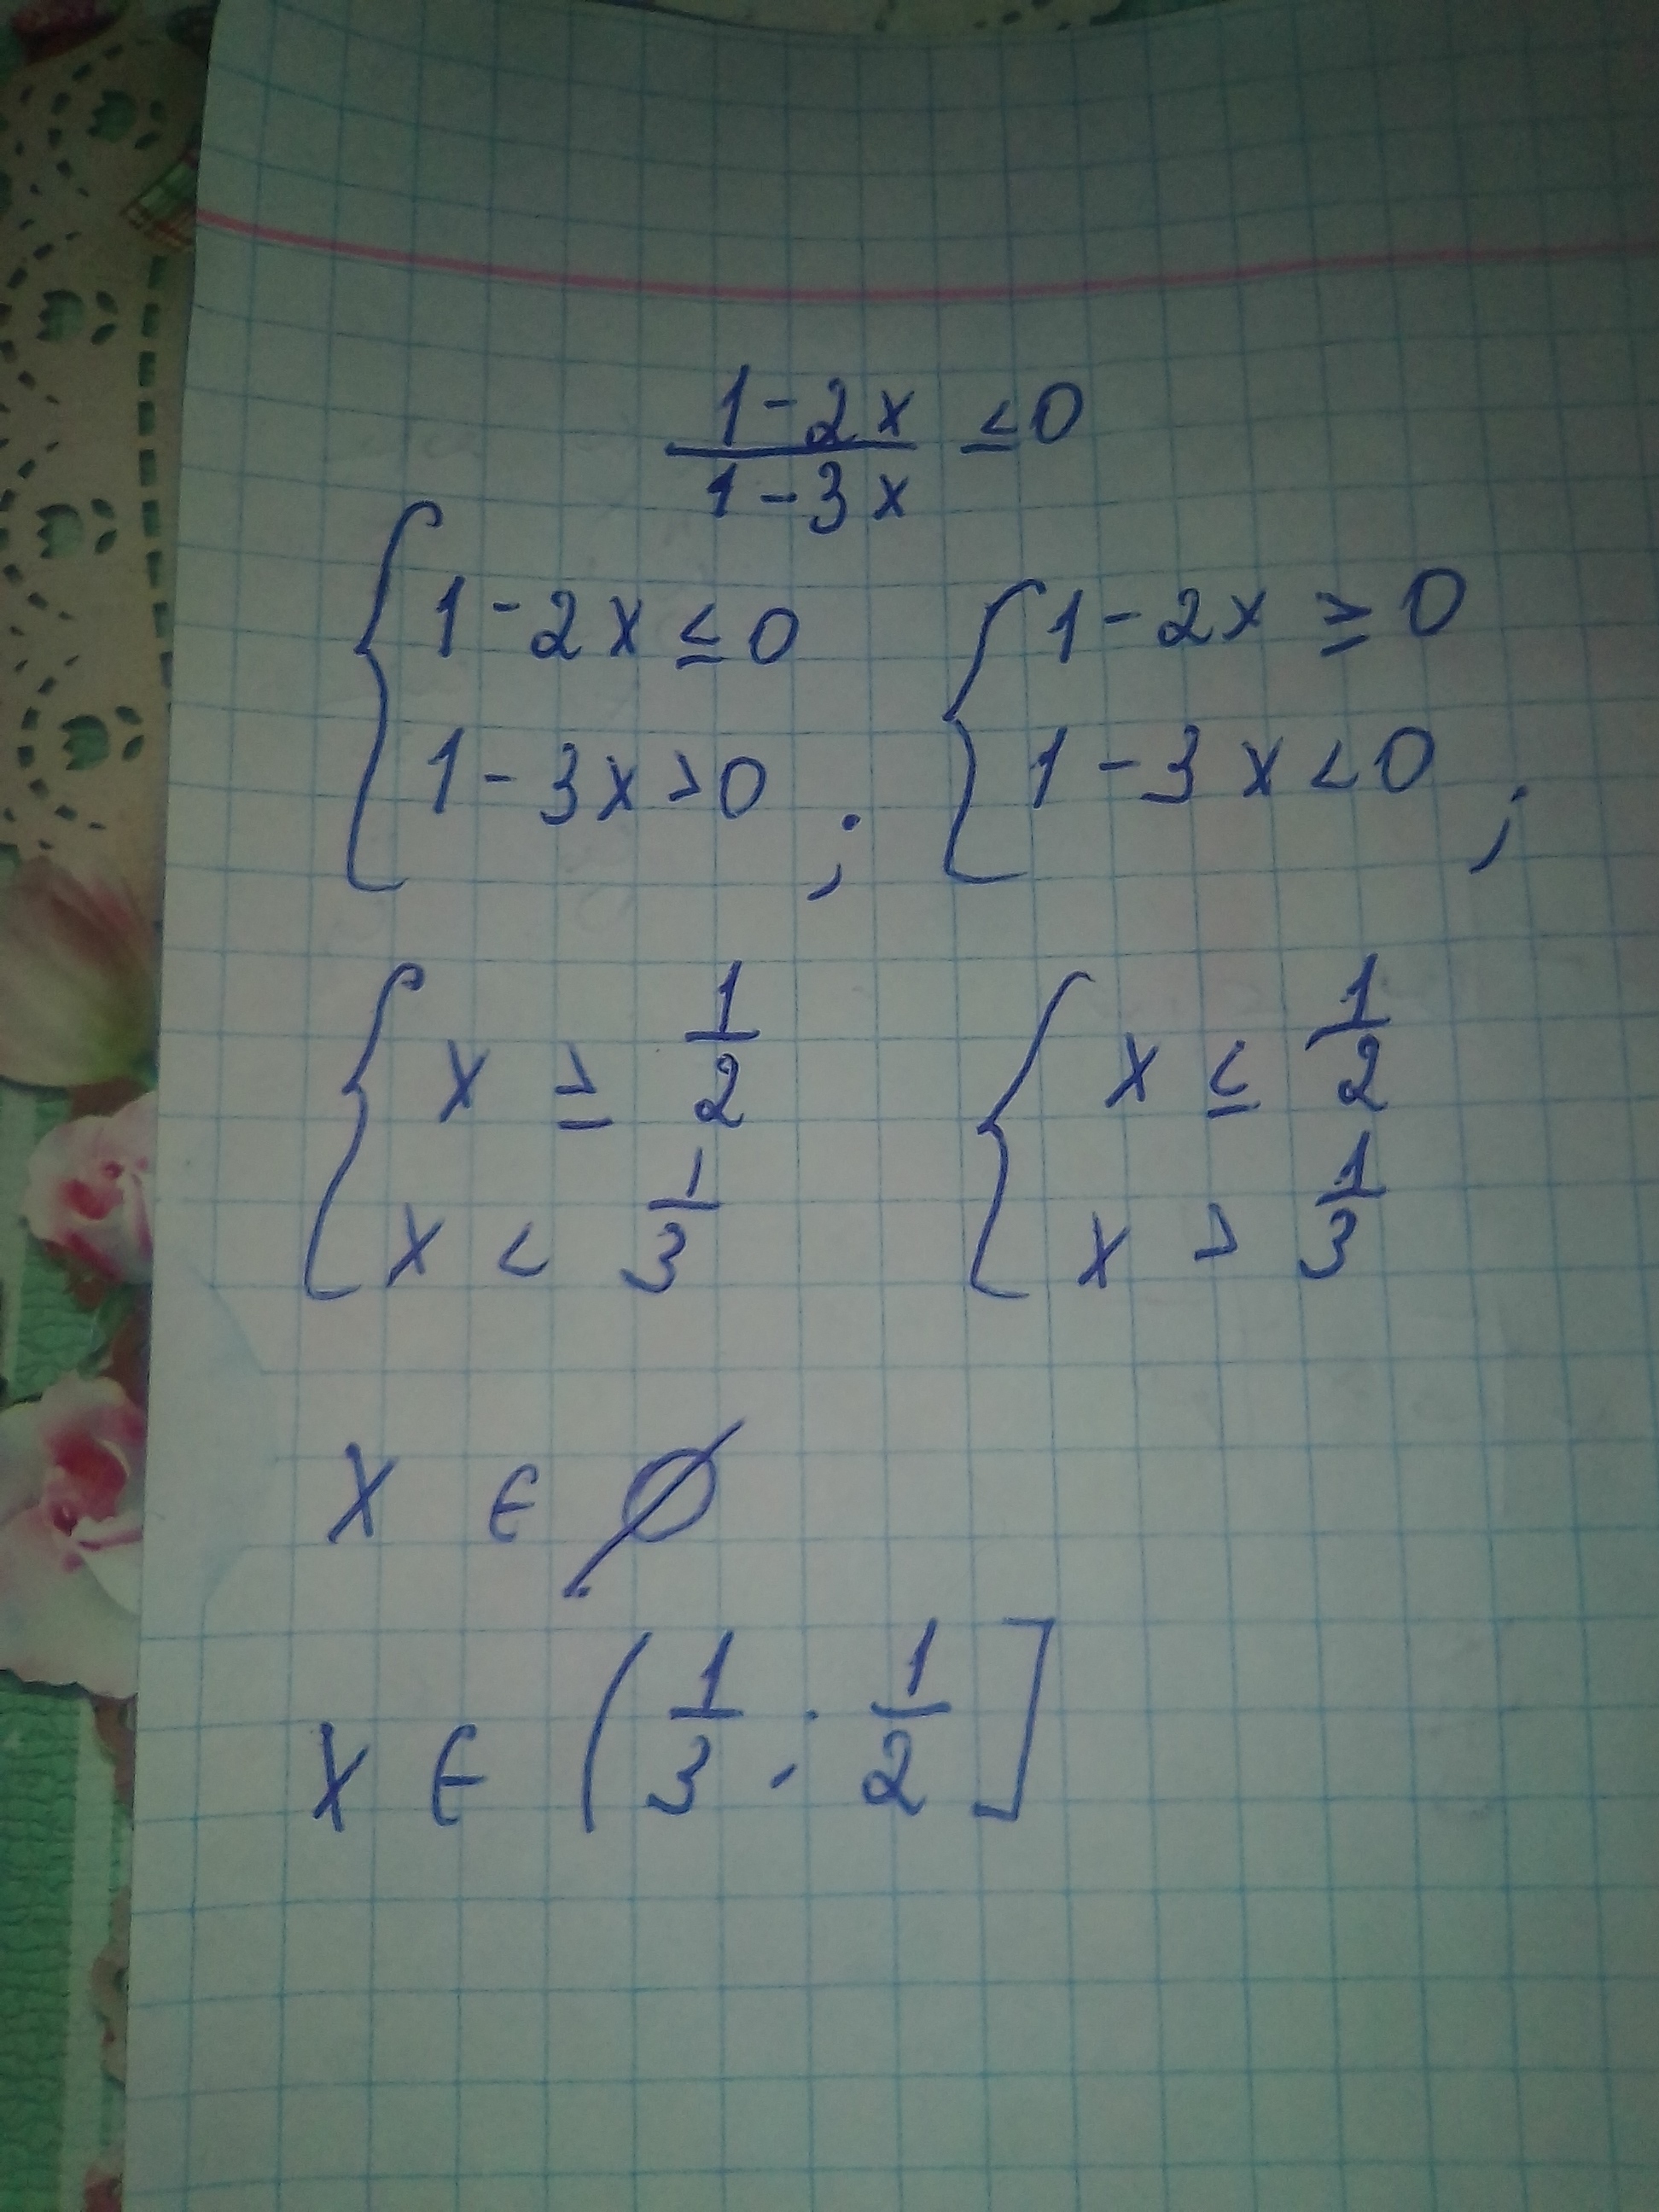 (1-2x)/(1-3x) ≤ 0
{ 1-2x ≤ 0 { 1-2x ≥ 0
1-3x > 0 ; 1-3x < 0 ;
{ x ≥ 1/2 { x ≤ 1/2
x < 1/3 x > 1/3
x ∈ ∅
x ∈ (1/3 ; 1/2]